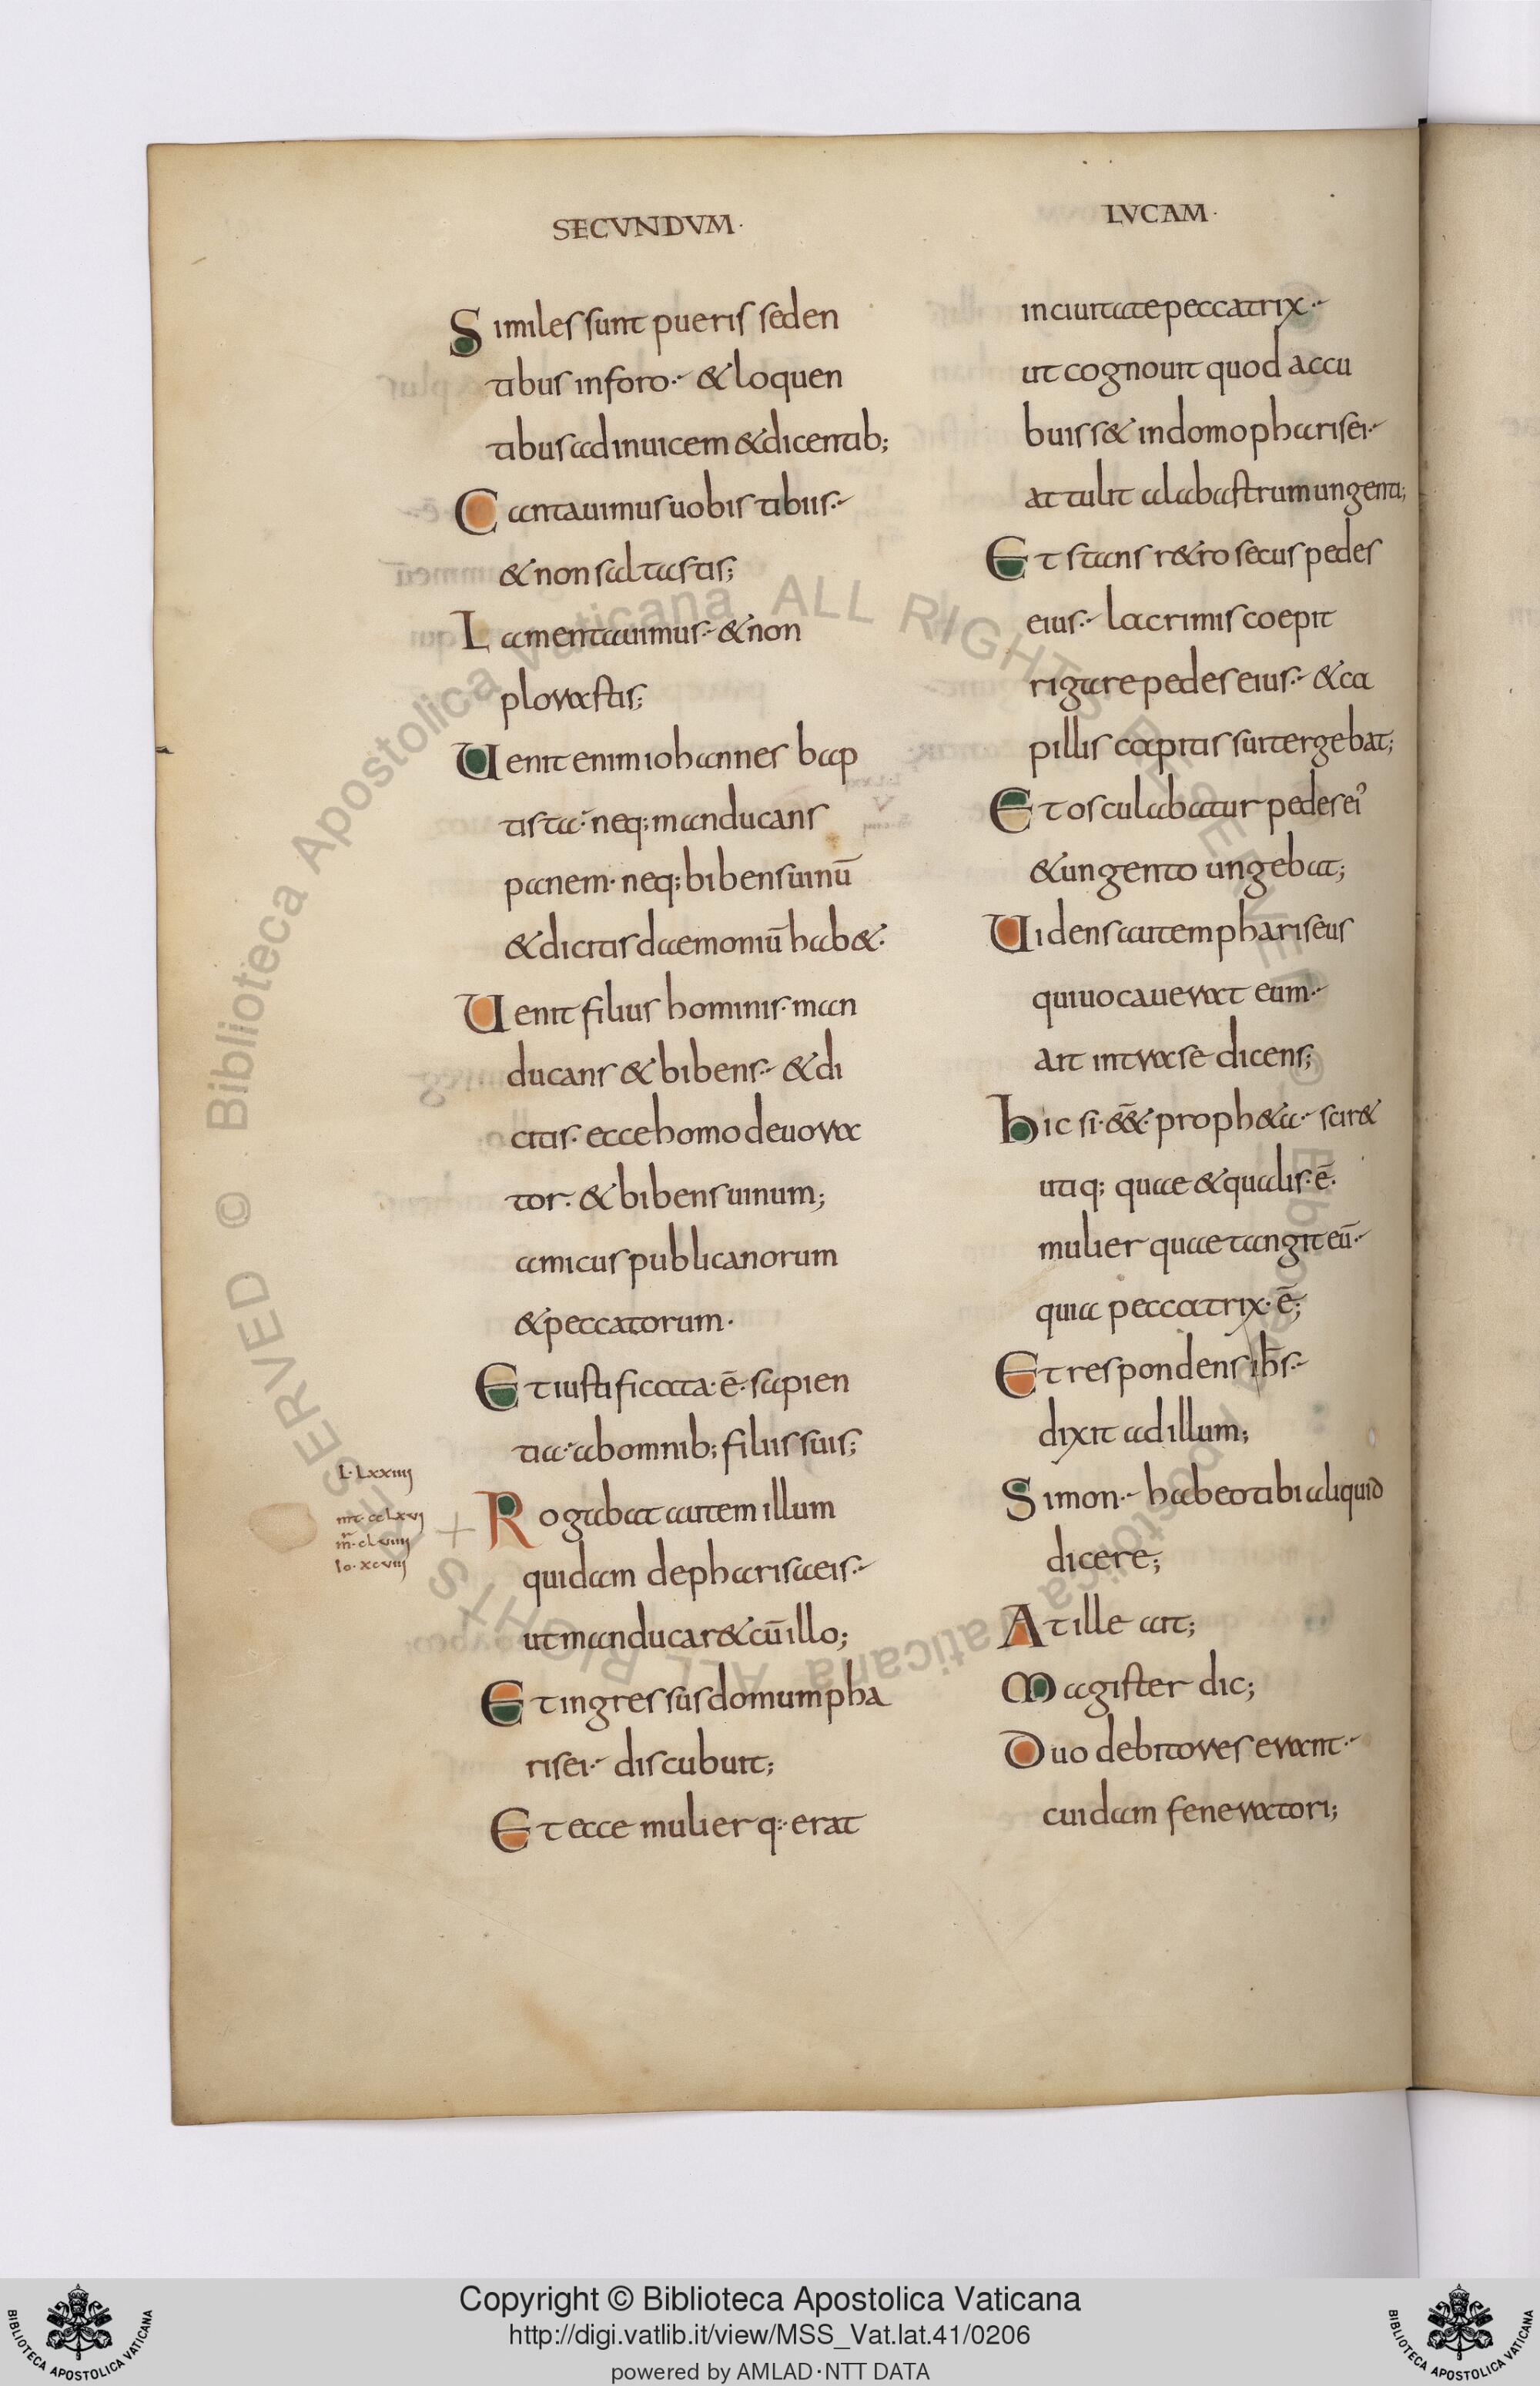 SECVNDVM·
Similes sunt pueris seden
tibus inforo·- & loquen
tibus adinuicem & dicentib;
Cantauimus uobis tibiis·-
& non saltastis;
Lamentauimus·- & non
plorastis;
Uenit enim iohannes bap
tista·- neq; manducans
panem· neq; bibens uinū
& dicitis daemoniū hab&·
Uenit filius hominis· man
ducans & bibens·- & di
citis· ecce homo deuora
tor·- & bibens uinum;
amicus publicanorum
& peccatorum·
Et iustificata·ē· sapien
tia·- ab omnib; filiis suis;
Rogabat autem illum
quidam de pharisaeis·-
ut manducar& cū illo;
Et ingressus domum pha
risei·- discubuit;
Et ecce mulier q·- erat
L· Lxxiiii
mt· cclxvi
m̄· clviiii
Io· xcviii
LVCAM·
in ciuitate peccatrix·-
ut cognouit quod accu
buiss& in domo pharisei·-
attulit alabastrum ungenti;
Et stans r&ro secus pedes
eius·- lacrimis coepit
rigare pedes eius·- & ca
pillis capitis sui tergebat;
Et osculabatur pedes ei'
& ungento ungebat;
Uidens autem phariseus
qui uocauerat eum·-
ait intra se dicens;
hic si·ēē&· proph&a·- scir&
utiq; quae & qualis·ē·
mulier quae tangit eū·-
quia peccatrix·ē;
Et respondens ih̄s·-
dixit ad illum;
Simon·- habeo tibi aliquid
dicere;
At ille ait;
Magister dic;
Duo debitores erant·-
cuidam feneratori;
Copyright © Biblioteca Apostolica Vaticana
http://digi.vatlib.it/view/MSS_Vat.lat.41/0206
powered by AMLAD·NTT DATA
BIBLIOTECA APOSTOLICA VATICANA
BIBLIOTECA APOSTOLICA VATICANA